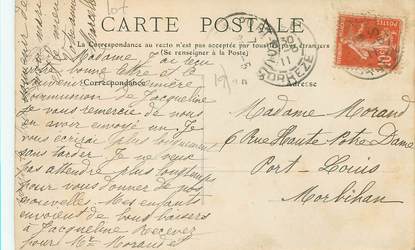 CARTE POSTALE
La Correspondance au recto n'est pas acceptée par tous les pays étrangers
(Se renseigner à la Poste)
Correspondance
Adresse
Madame j'ai reçu
votre bonne lettre et le
souvenir de première
communion de Jacqueline
je vous remercie de nous
en avoir envoyé un Je
vous écrirai plus longuement
sans tarder. Je ne veux
pas attendre plus longtemps
pour vous donner de nos
nouvelles. Mes enfants
envoient de bons baisers
à Jacqueline Recevez
pour Mr Morand et
Madame Morand
6 Rue Haute Notre Dame
Port-Louis
Morbihan